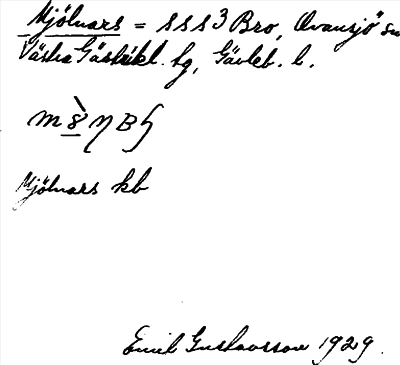 Mjölnars = sss 3 Bro, Ovansjö sn
Västra Gästrikl. tg, Gävleb. l.
Mjölnars kb
Emil Gustavsson 1929.